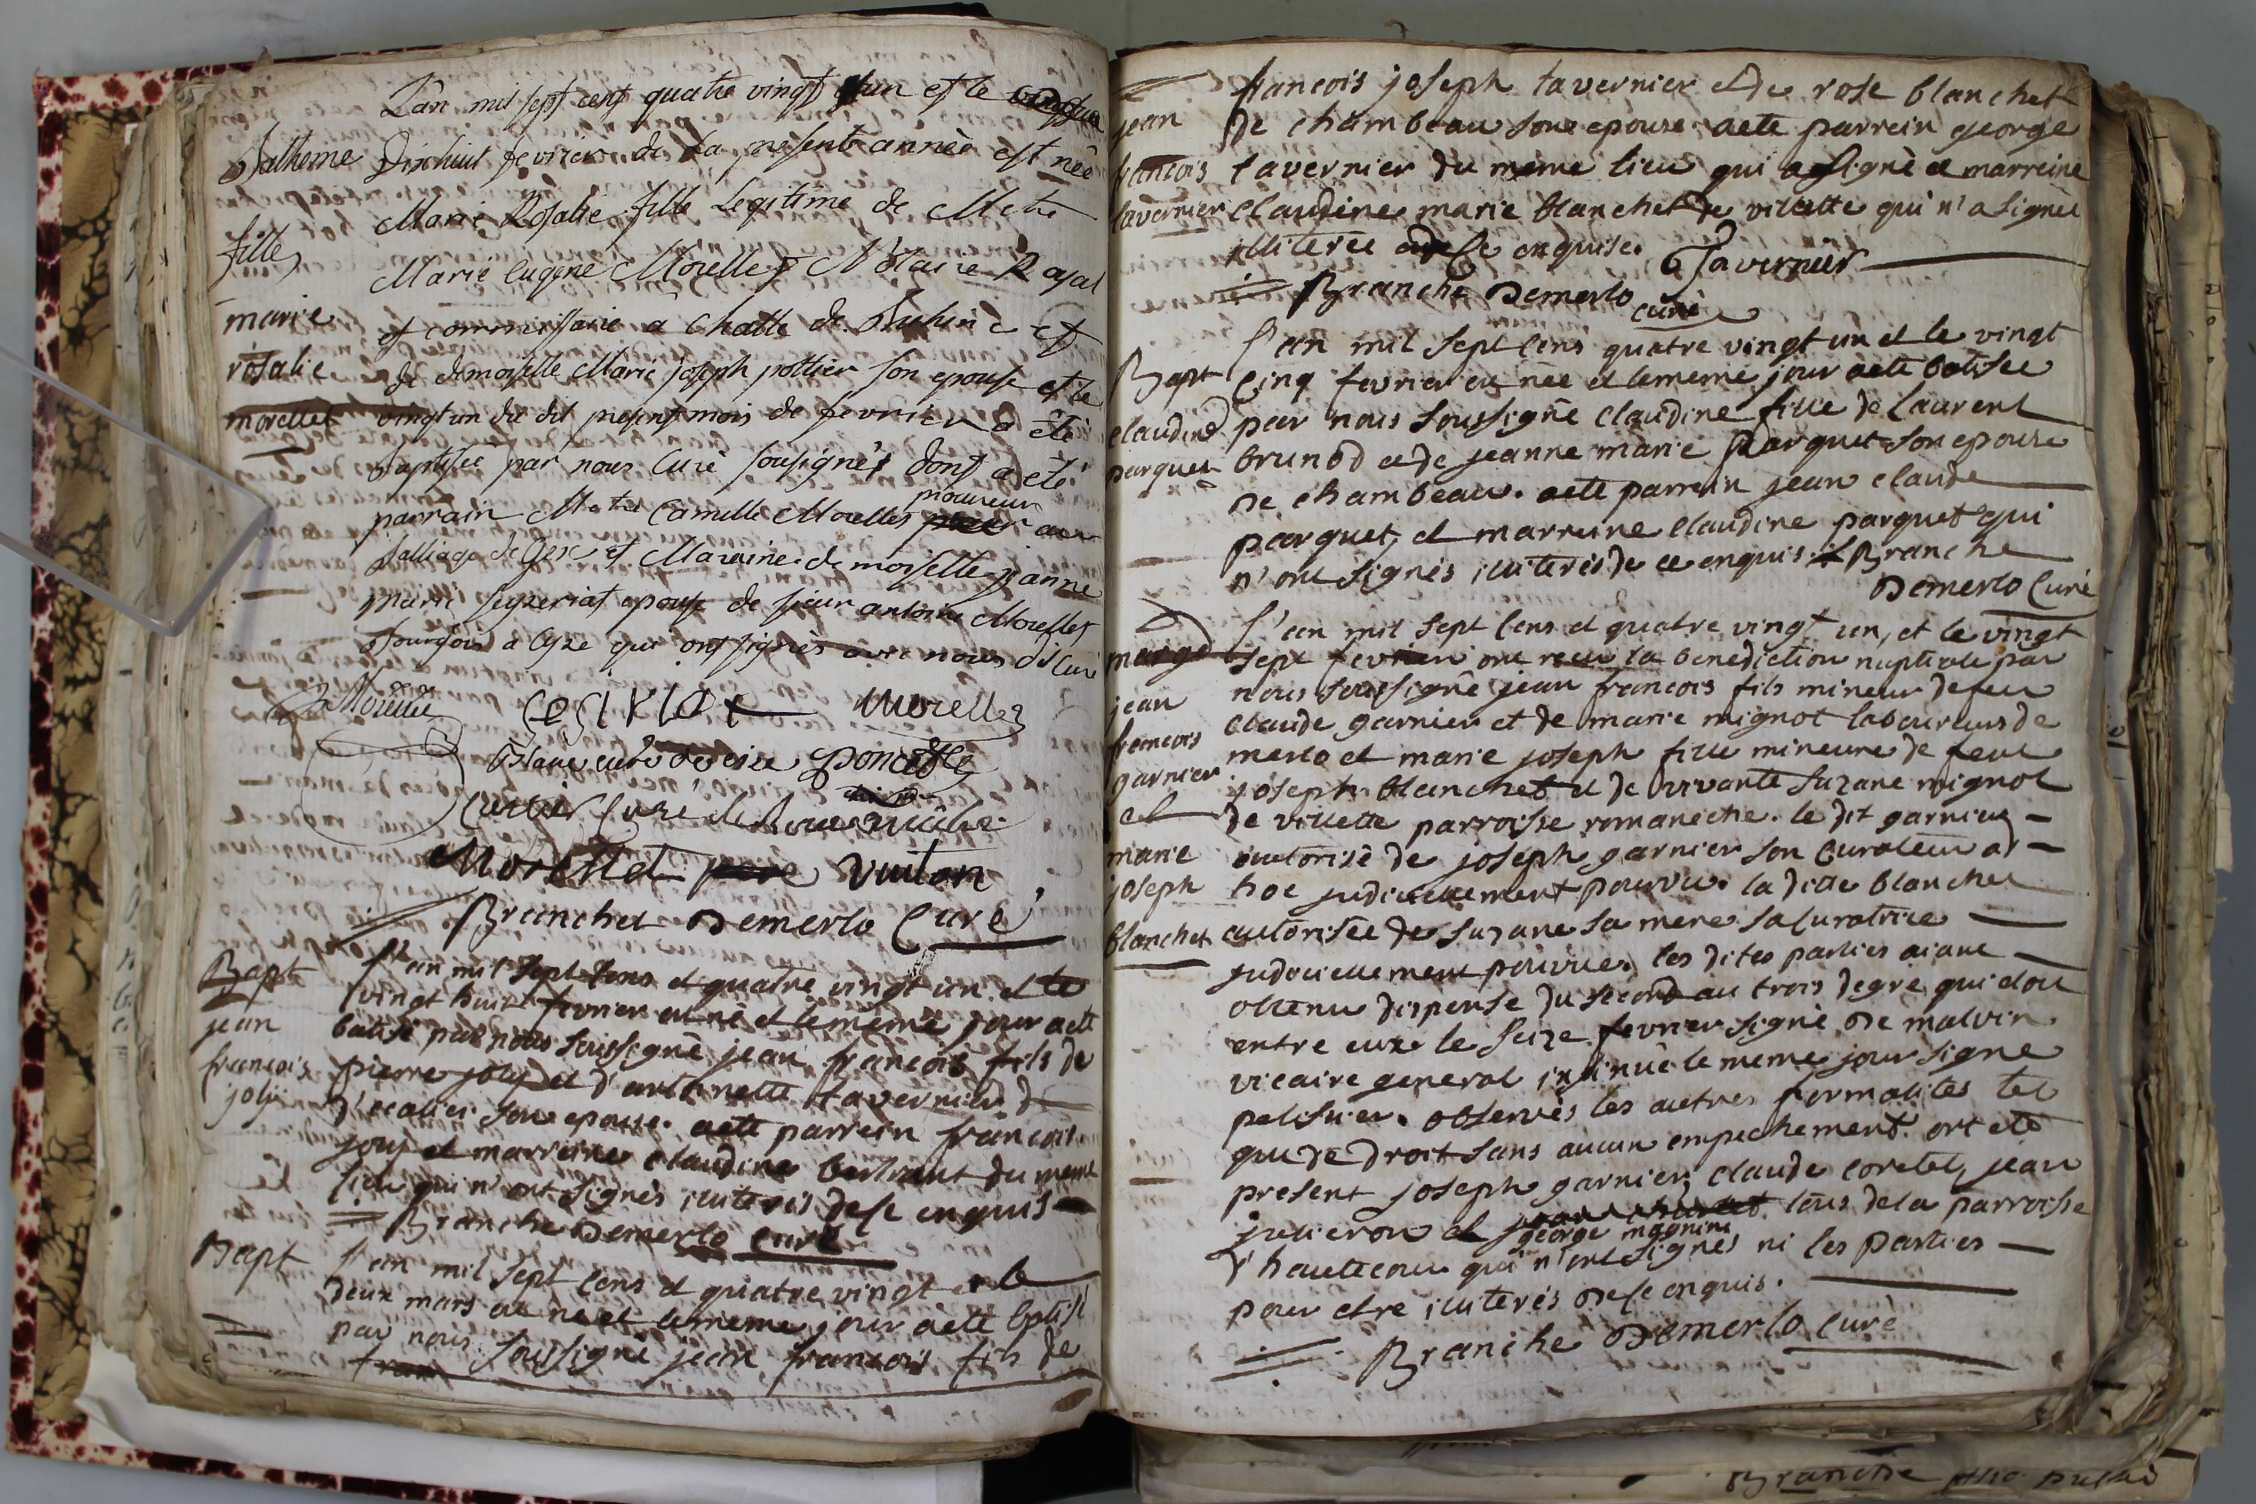 L'an mil sept cent quatre vingt un et le
Batheme Dixhuit fevrier de La presente année est née
Marie Rosalie fille Legitime de Me
fille
Marie Eugene Morellet Notaire Royal
marie
et commissaire a Chatte de et
rosalie
de demoiselle Marie joseph pottier son epouse et le
morellet vingt un du dit present mois de fevrier a été
baptisée par nous Curé sousignés dont a été
parrain Me Camille Morellet procureur au
balliage de Gex et Maraine demoiselle jeanne
marie epouse de sieur antoine Morellet
Bourgois a qui ont signés avec nous dit Curé
Morellet Morellet
curé Poncet
Cuvier Curé de
Morellet pere Vuiton
Branche Demerlo Curé
Bapt L'an mil sept cens et quatre vingt un et le
vingt huit fevrier est né et le meme jour a ete
jean batisé par nous soussigné jean francois fils de
francois pierre joly et d'anthonette tavernier
joly son epouse. a ete parrein francois
joly et marreine claudine bertrant du meme
lieu qui n'ont signés illiteris de ce enquis
Branche Demerlo curé
Bapt L'an mil sept cens et quatre vingt et le
deux mars est né et le meme jour a ete batisé
par nous soussigné jean francois fils de
francois joseph tavernier et de rose blanchet
jean de chambeau son epouse a ete parrein george
francois tavernier du meme lieu qui a signé et marreine
tavernier claudine marie blanchet de vilette qui n'a signée
illiterée de ce enquise. G Tavernier
Branche Demerlo curé
L'an mil sept cens quatre vingt un et le vingt
Bapt cinq fevrier est née et le meme jour a ete batisée
claudine par nous soussigné claudine fille de laurent
parquet brunod et de jeanne marie parquet son epouse
de chambeau. a ete parrein jean claude
parquet, et marreine claudine parquet qui
n'ont signés illiteris de ce enquis. Branche
Demerlo Curé
L'an mil sept cens et quatre vingt un, et le vingt
mariage sept fevrier ont recu la benediction nuptiale par
jean nous soussigné jean francois fils mineur de feu
francois claude garnier et de marie mignot laboureurs de
garnier merlo et marie joseph fille mineure de feu
et joseph blanchet et de vivante suzane mignot
de villette parroisse romaneche. le dit garnier
marie autorisé de joseph garnier son curateur ad
joseph hoc judiciellement pourvu. la ditte blanchet
blanchet autorisée de suzane sa mere sa curatrice
judiciellement pourvue. les dites parties aiant
obtenu dispense du second au trois degré qui etoit
entre eux le seize fevrier signé De malvin
vicaire general insinué le meme jour signé
pelissier. observés les autres formalites tel
que de droit sans aucun empechement. ont eté
present joseph garnier, claude coretet, jean
julieron et george magnin tous de la parroisse
d'hautecour qui n'ont signés ni les parties
pour etre illiterés de ce enquis.
Branche Demerlo Curé
Branche